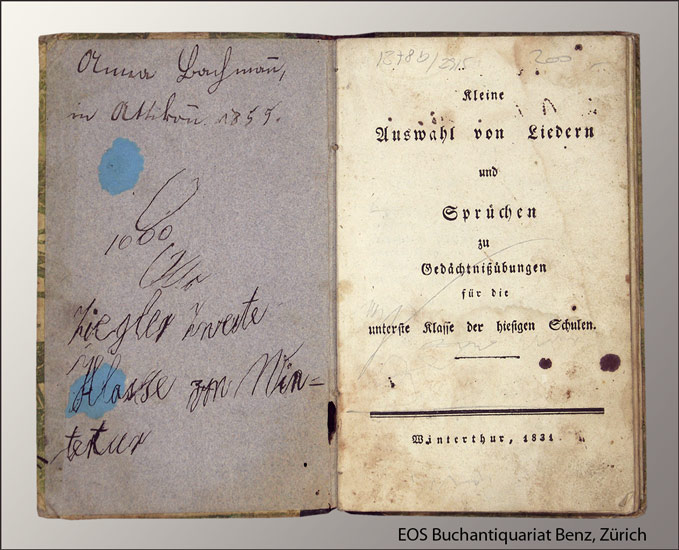 Anna Bachman̅,
in Attikon̅. 1855.
1000
Otto
Ziegler Zweite
Klasse zu Win=
tertur
200
Kleine
Auswahl von Liedern
und
Sprüchen
zu
Gedächtnißübungen
für die
unterste Klasse der hiesigen Schulen.
Winterthur, 1831.
EOS Buchantiquariat Benz, Zürich